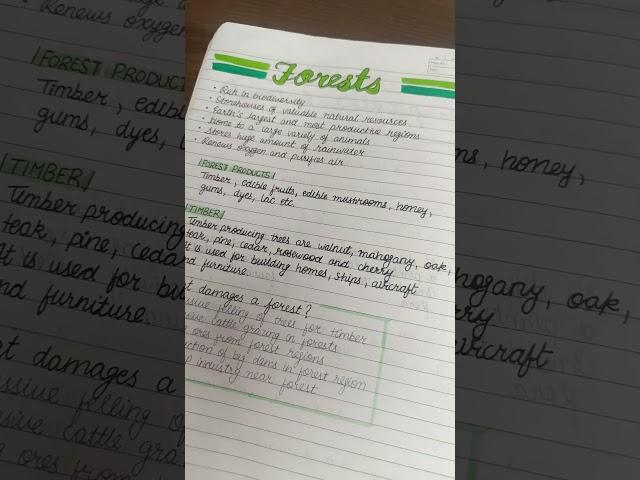 Forests
• Rich in biodiversity
• Storehouses of valuable natural resources
• Earth's largest and most productive regions
• Home to a large variety of animals
• Stores huge amount of rainwater
• Renews oxygen and purifies air
FOREST PRODUCTS
Timber, edible fruits, edible mushrooms, honey,
gums, dyes, lac etc.
TIMBER
Timber producing trees are walnut, mahogany, oak,
teak, pine, cedar, rosewood and cherry
It is used for building homes, ships, aircraft
nd furniture.
t damages a forest?
ssive felling of trees for timber
sive cattle grazing in forests
ores from forest regions
ction of big dams in forest region
industry near forest